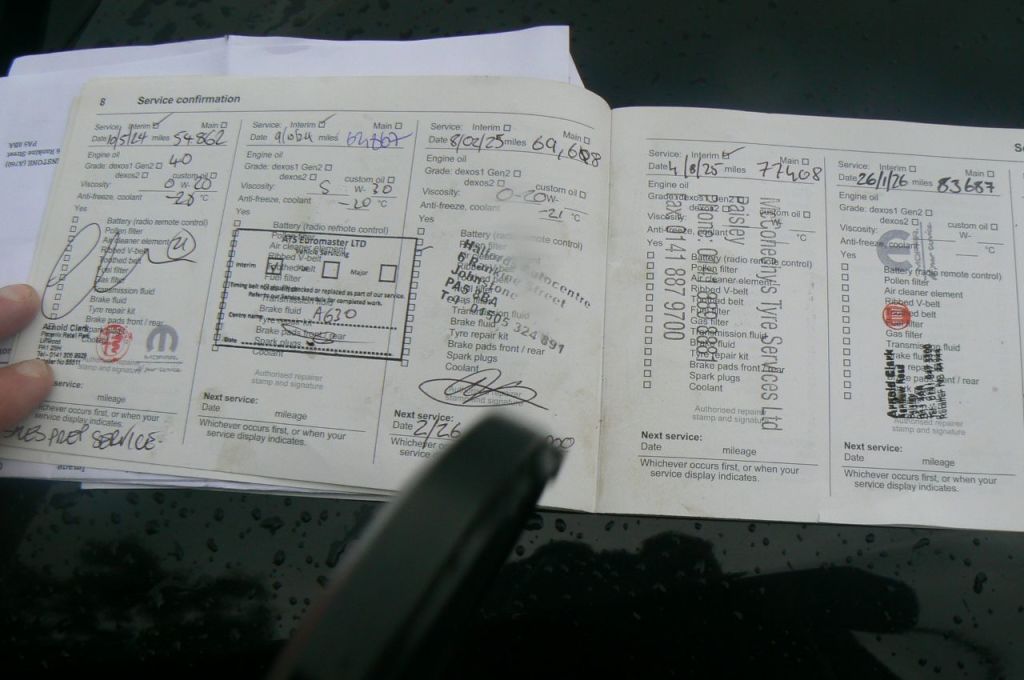 8 Service confirmation
Service: Interim Main
Date 10/5/24 miles 54862
Engine oil 40
Grade: dexos1 Gen2
dexos2 custom oil
Viscosity: 0 W- 20
Anti-freeze, coolant -20 °C
Yes
Battery (radio remote control)
Pollen filter
Air cleaner element
Ribbed V-belt
Toothed belt
Fuel filter
Gas filter
Transmission fluid
Brake fluid
Tyre repair kit
Brake pads front / rear
Arnold Clark
mileage
Whichever occurs first, or when your
service display indicates.
SALES PREP SERVICE
Service: Interim Main
Date miles
Engine oil
Grade: dexos1 Gen2
dexos2 custom oil
Viscosity: 5 W- 30
Anti-freeze, coolant -20 °C
Yes
Battery (radio remote control)
Pollen filter
Air cleaner element
ATS Euromaster LTD
Interim Full Major
Timing belt not checked or replaced as part of our service.
Centre name A630
Date
Brake fluid
Brake pads front / rear
Spark plugs
Coolant
Authorised repairer
stamp and signature
Next service:
Date mileage
Whichever occurs first, or when your
service display indicates.
Service: Interim Main
Date 8/02/25 miles 69,608
Engine oil
Grade: dexos1 Gen2
dexos2 custom oil
Viscosity: 0-20 W-
Anti-freeze, coolant -21 °C
Yes
Autocentre
Street
Johnstone
PA5 8BA
01505 324 891
Brake fluid
Tyre repair kit
Brake pads front / rear
Spark plugs
Coolant
Next service:
Date 2/26
Whichever
service
Service: Interim Main
Date 4/8/25 miles 77408
Engine oil
Grade: dexos1 Gen2
dexos2 custom oil
Viscosity: W-
Anti-freeze, coolant °C
Yes
Battery (radio remote control)
Pollen filter
Air cleaner element
Ribbed V-belt
Toothed belt
Fuel filter
Gas filter
Transmission fluid
Brake fluid
Tyre repair kit
Brake pads front / rear
Spark plugs
Coolant
McConechy's Tyre Services Ltd
Paisley
Phone: 0141 887 9700
Authorised repairer
stamp and signature
Next service:
Date mileage
Whichever occurs first, or when your
service display indicates.
Service: Interim Main
Date 26/1/26 miles 83687
Engine oil
Grade: dexos1 Gen2
dexos2 custom oil
Viscosity: W-
Anti-freeze, coolant °C
Yes
Battery (radio remote control)
Pollen filter
Air cleaner element
Ribbed V-belt
Toothed belt
Fuel filter
Gas filter
Transmission fluid
Brake fluid
Tyre repair kit
Brake pads front / rear
Spark plugs
Coolant
Arnold Clark
Authorised repairer
stamp and signature
Next service:
Date mileage
Whichever occurs first, or when your
service display indicates.